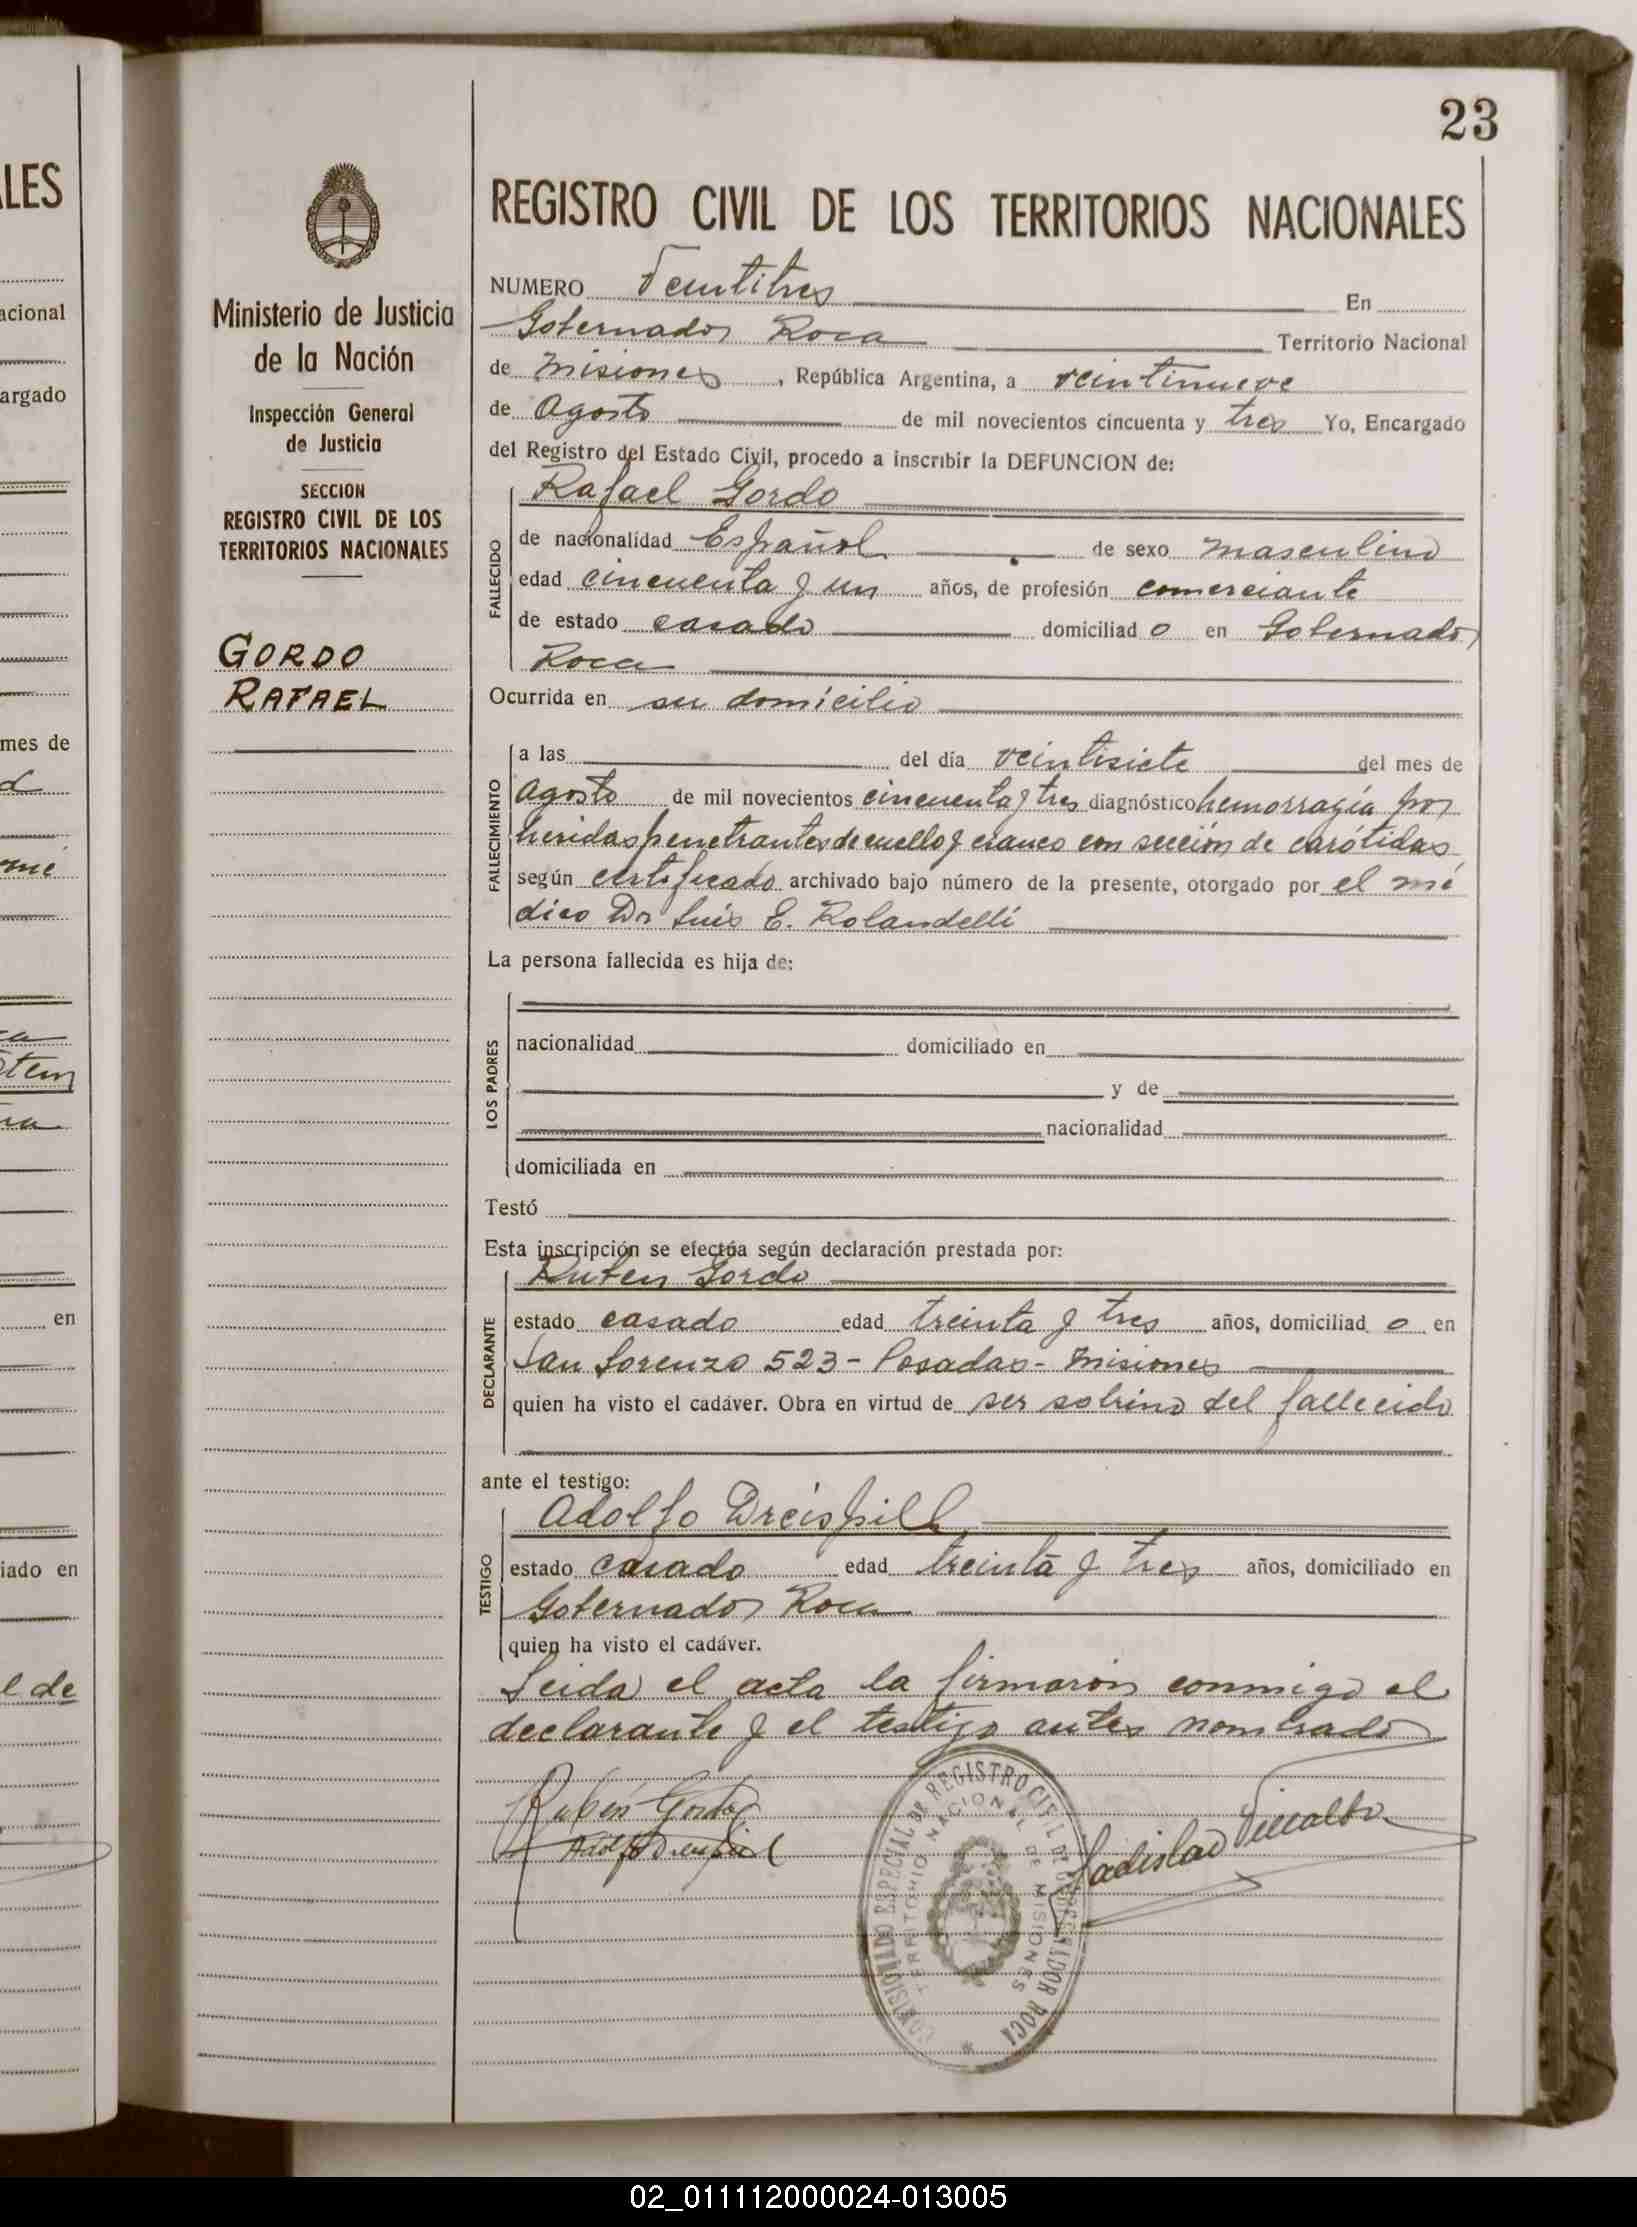 23
LES
acional
argado
mes de
en
iado en
l de
Ministerio de Justicia
de la Nación
Inspección General
de Justicia
SECCION
REGISTRO CIVIL DE LOS
TERRITORIOS NACIONALES
GORDO
RAFAEL
REGISTRO CIVIL DE LOS TERRITORIOS NACIONALES
NUMERO Veintitres En
Gobernador Roca Territorio Nacional
de Misiones, República Argentina, a veintinueve
de Agosto de mil novecientos cincuenta y tres Yo, Encargado
del Registro del Estado Civil, procedo a inscribir la DEFUNCION de:
FALLECIDO
Rafael Gordo
de nacionalidad Español de sexo masculino
edad cincuenta y un años, de profesión comerciante
de estado casado domiciliad o en Gobernador
Roca
Ocurrida en su domicilio
FALLECIMIENTO
a las del día veintisiete del mes de
Agosto de mil novecientos cincuenta y tres diagnóstico hemorragia por
heridas penetrantes de cuello y craneo con sección de carótidas
según certificado archivado bajo número de la presente, otorgado por el mé
dico Dr Luis E. Rolandelli
La persona fallecida es hija de:
LOS PADRES
nacionalidad domiciliado en
y de
nacionalidad
domiciliada en
Testó
Esta inscripción se efectúa según declaración prestada por:
DECLARANTE
Ruben Gordo
estado casado edad treinta y tres años, domiciliad o en
San Lorenzo 523 - Posadas - Misiones
quien ha visto el cadáver. Obra en virtud de ser sobrino del fallecido
ante el testigo:
TESTIGO
Adolfo Dreispill
estado casado edad treinta y tres años, domiciliado en
Gobernador Roca
quien ha visto el cadáver.
Leida el acta la firmaron conmigo el
declarante y el testigo antes nombrado
Rubén Gordo
Ladislao Villalba
REGISTRO CIVIL DE GOBERNADOR ROCA
TERRITORIO NACIONAL DE MISIONES
02_011112000024-013005